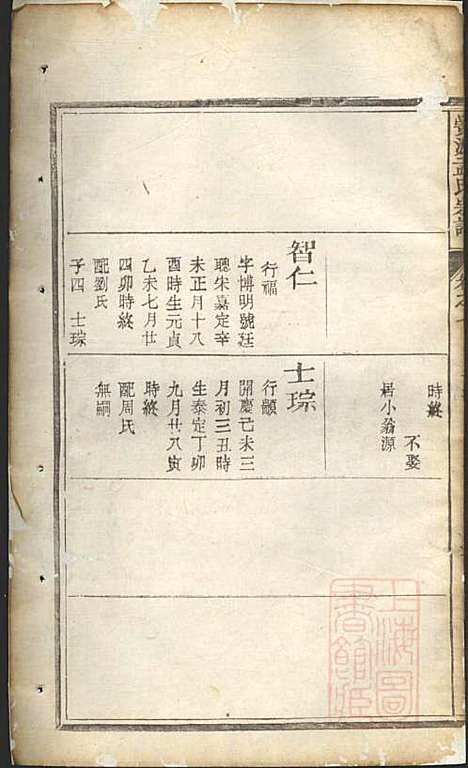 時終
不娶
居小翁源
智仁
行福
字博明號廷
聰宋嘉定辛
未正月十八
酉時生元貞
乙未七月廿
四卯時終
配劉氏
子四 士琮
士琮
行顯
開慶己未三
月初三丑時
生泰定丁卯
九月廿八寅
時終
配周氏
無嗣
上海圖
書館